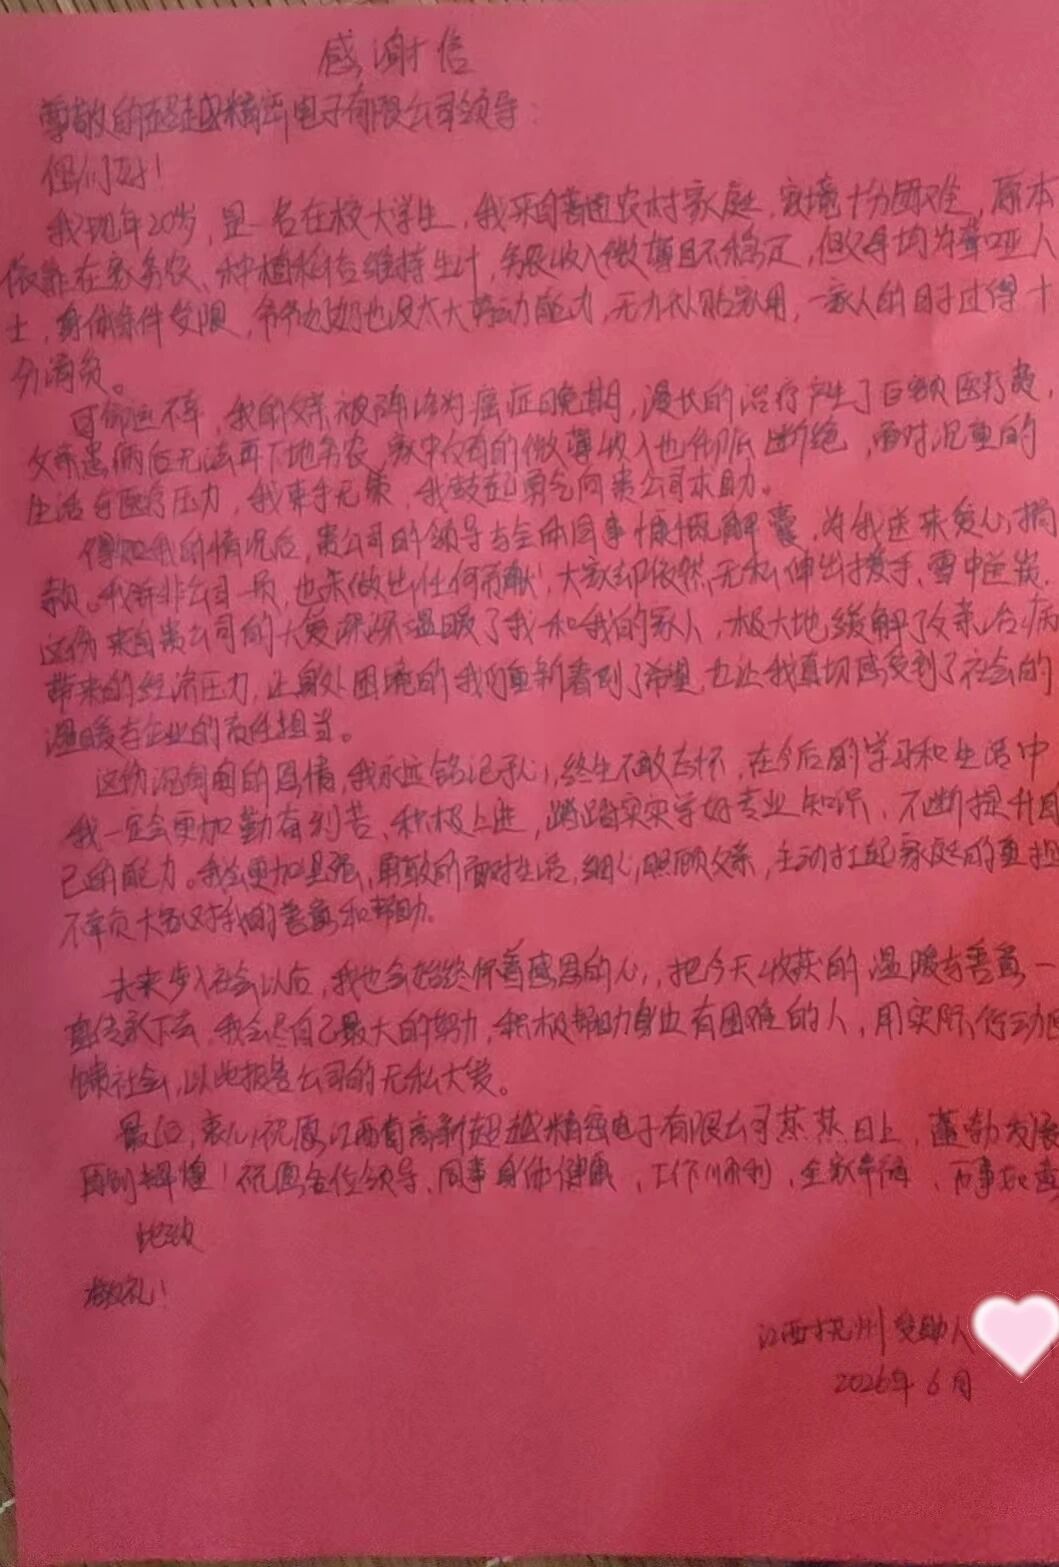 感谢信
尊敬的超越精密电子有限公司领导:
您们好!
我现年20岁,是一名在校大学生,我来自普通农村家庭,家境十分困难,原本
依靠在家务农、种植稻谷维持生计,务农收入微薄且不稳定,但父母均为聋哑人
士,身体条件受限,爷爷奶奶也没太大劳动能力,无力补贴家用,一家人的日子过得十
分清贫。
可命运不幸,我的父亲被确诊为癌症晚期,漫长的治疗产生了巨额医疗费,
父亲患病后无法再下地务农,家中仅有的微薄收入也彻底断绝,面对沉重的
生活与医疗压力,我束手无策,我鼓起勇气向贵公司求助。
得知我的情况后,贵公司的领导与全体同事慷慨解囊,为我送来爱心捐
款。我并非公司一员,也未做出任何贡献!大家却依然无私伸出援手,雪中送炭,
这份来自贵公司的大爱深深温暖了我和我的家人,极大地缓解了父亲治病
带来的经济压力,让身处困境的我们重新看到了希望,也让我真切感受到了社会的
温暖与企业的责任担当。
这份沉甸甸的恩情,我永远铭记于心,终生不敢忘怀,在今后的学习和生活中
我一定会更加勤奋刻苦、积极上进,踏踏实实学好专业知识、不断提升自
己的能力。我会更加坚强,勇敢的面对生活,细心照顾父亲,主动扛起家庭的重担
不辜负大家对我的善意和帮助。
未来步入社会以后,我也会始终怀着感恩的心,把今天收获的温暖与善意一
直传承下去,我会尽自己最大的努力,积极帮助身边有困难的人,用实际行动回
馈社会,以此报答公司的无私大爱。
最后,衷心祝愿江西省高新超越精密电子有限公司蒸蒸日上,蓬勃发展
再创辉煌!祝愿各位领导、同事身体健康,工作顺利,全家幸福,万事如意
此致
敬礼!
江西抚州受助人
2026年6月